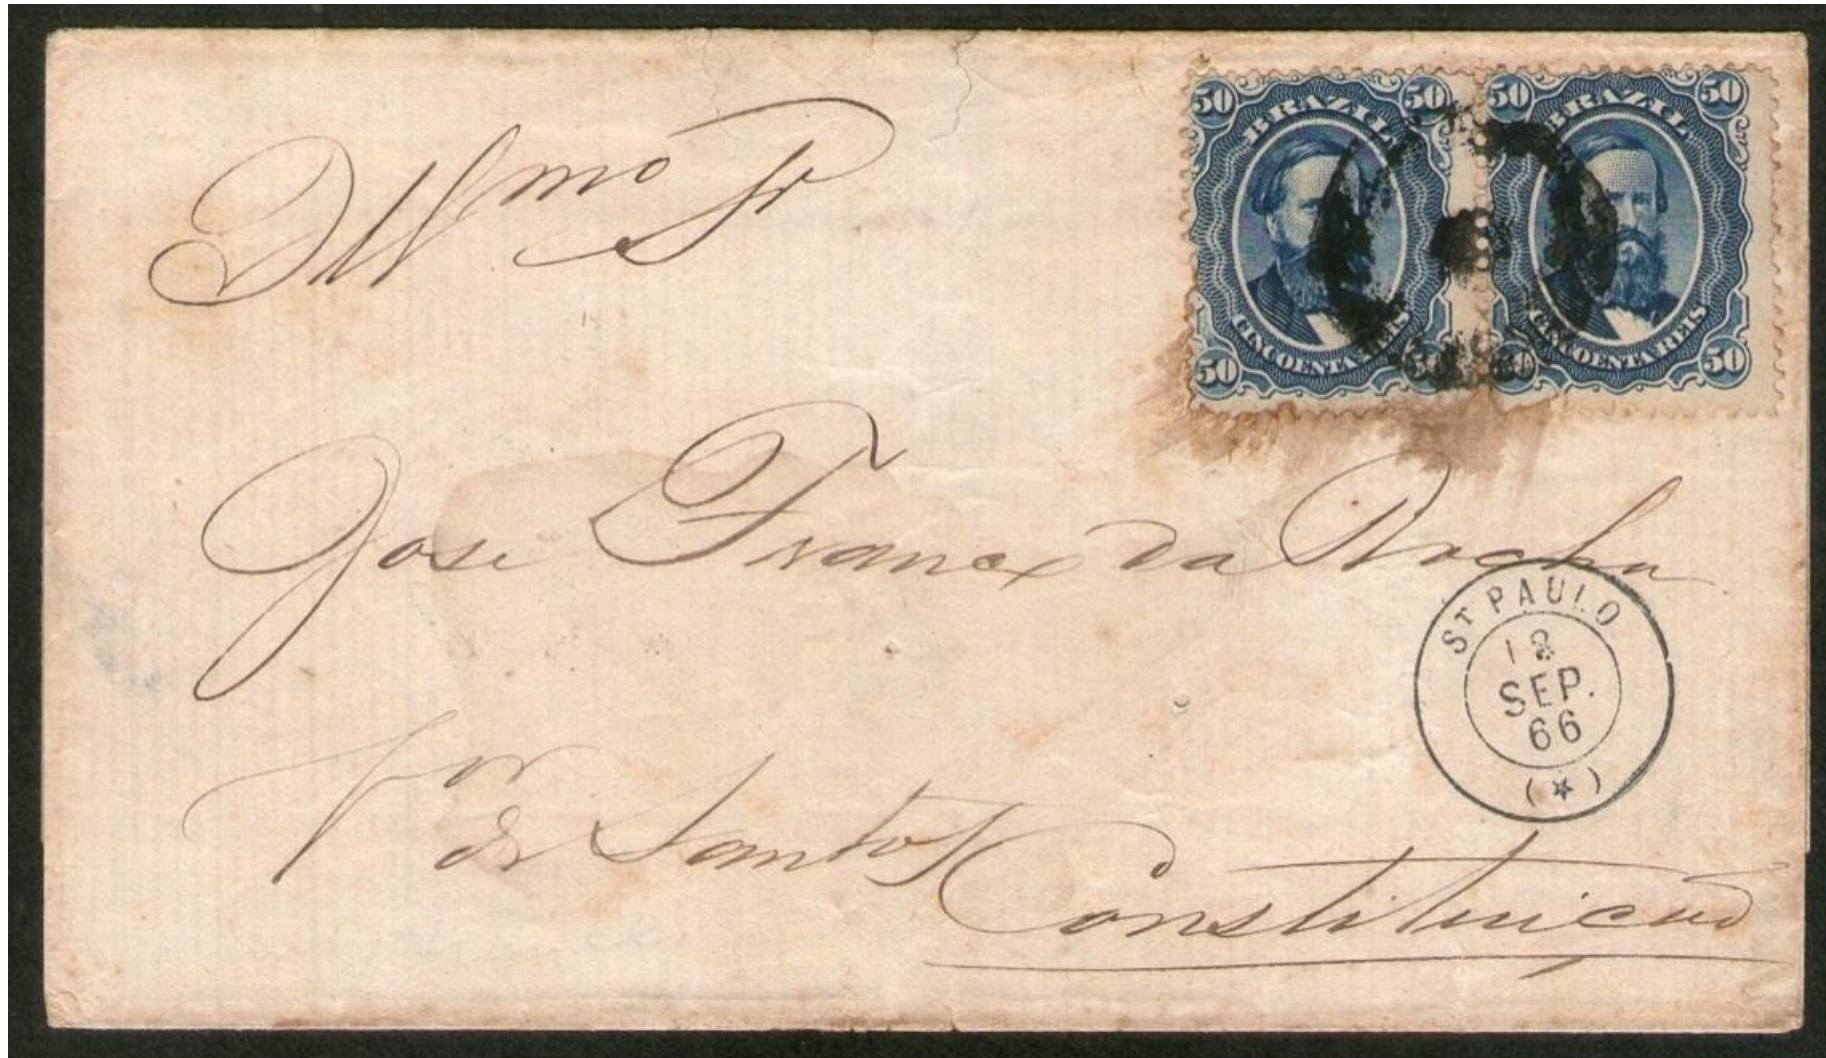 Illmo Sr
50 BRAZIL 50
CINCOENTA REIS
50
50 BRAZIL 50
CINCOENTA REIS
50
Jose Franco da Rocha
ST PAULO
SEP.
66
(*)
Por
de Santos
Constituicaõ